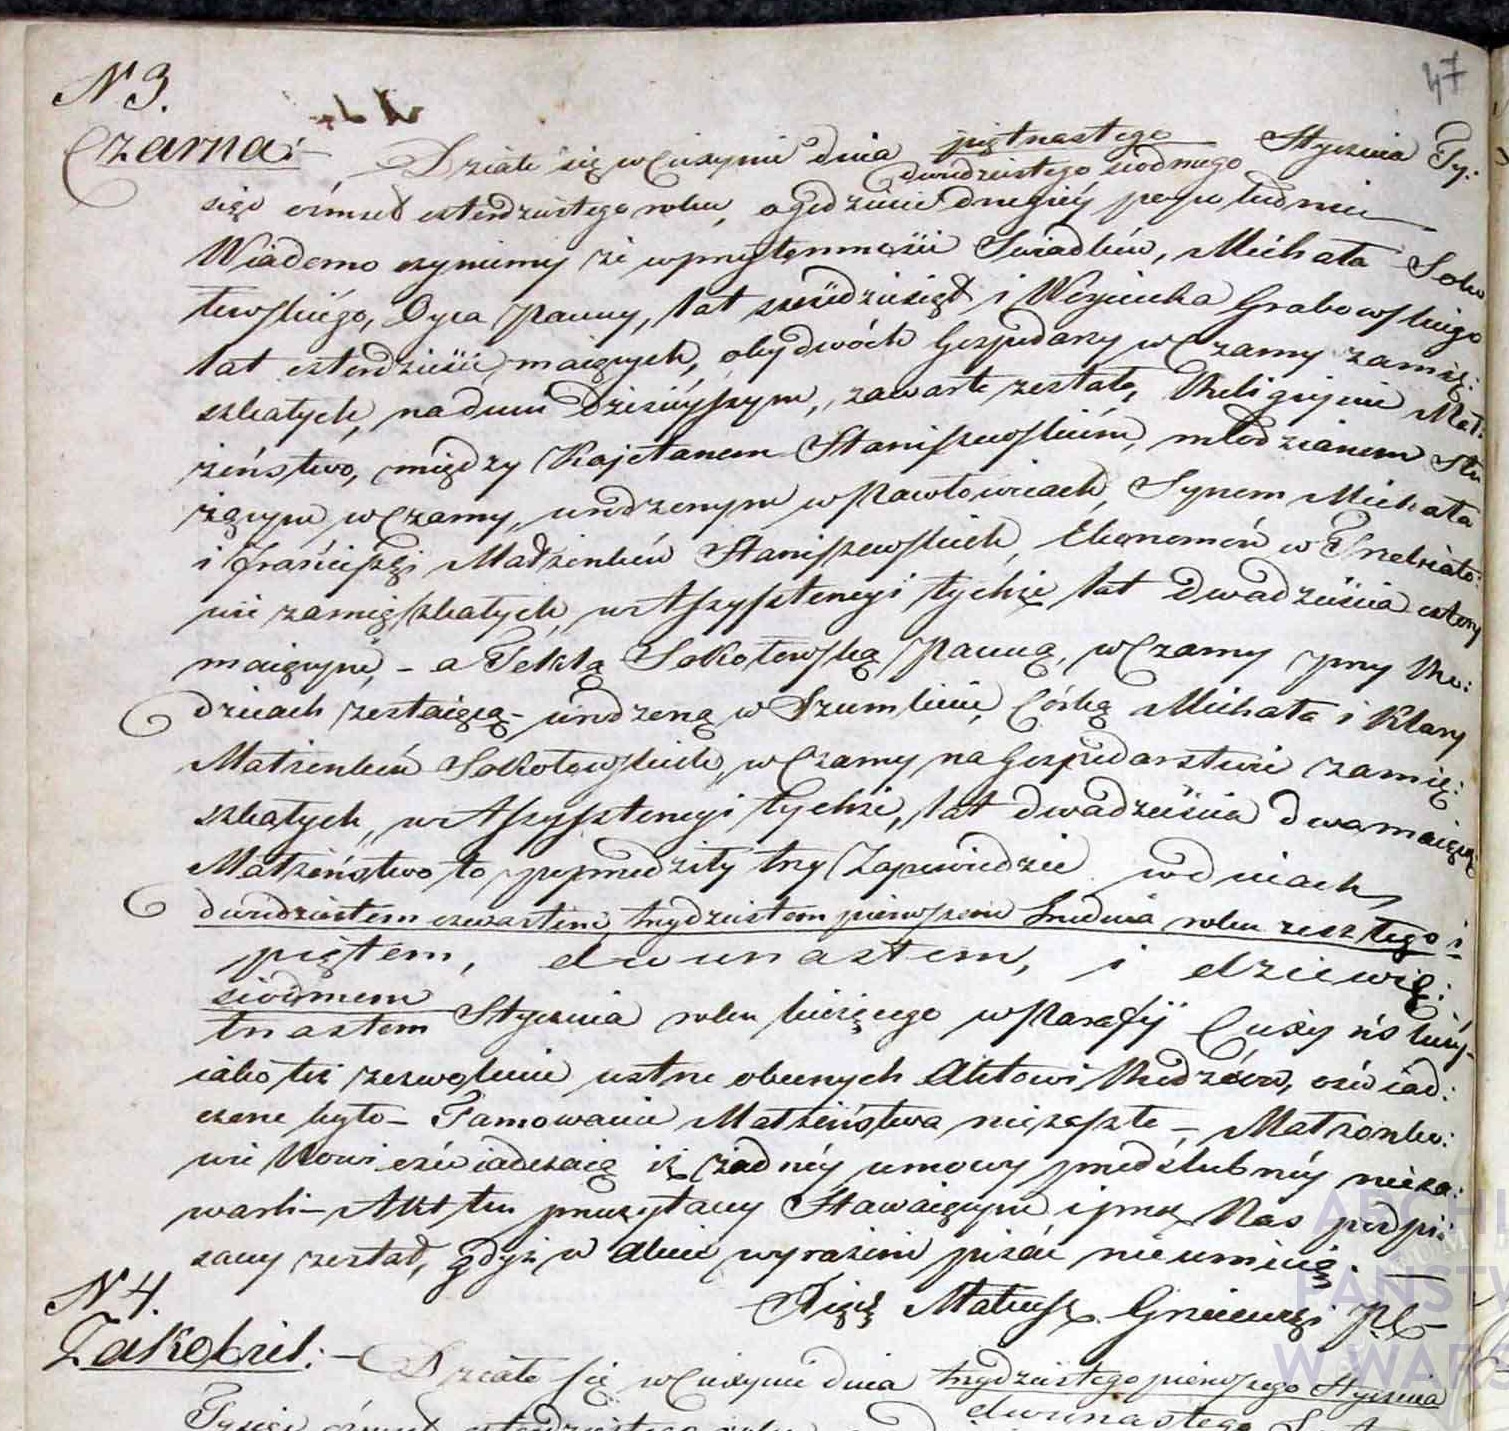 47
N 3.
Czarna:
Działo się w Cieksynie dnia piętnastego Stycznia Ty:
dwudziestego siódmego
siąc ośmset czterdziestego roku, o godzinie drugiéy po południu
Wiadomo czyniemy że w przytomności Swiadków, Michała Soko
łowskiégo, Oyca Panny, lat sześćdziesiąt i Woyciecha Grabowskiego
lat czterdzieści maiących, obydwóch Gospodarzy w Czarny zamię:
szkałych, na dniu dzisiéyszym, zawarte zostało, Religijne Mał:
żeństwo, między Kajetanem Staniszewskiém, młodzianem słu
żącym w Czarny, urodzonym w Pawłowicach, Synem Michała
i Franciszki Małżonków Staniszewskich, Ekonomów w
zamięszkałych, w Assystencyi tychże lat dwadzieścia cztery
maiącym, - a Teklą Sokołowską Panną, w Czarny przy Ro:
dzicach zostaiącą - urodzoną w Szumlinie, Córką Michała i Klary
Małżonków Sokołowskich, w Czarny na Gospodarstwie zamię:
szkałych, w Assystencyi tychże, lat dwadzieścia dwa maiącą:
Małżeństwo to poprzedziły trzy Zapowiedzie w dniach
dwudziestem czwartem, trzydziestem pierwszem Grudnia roku zeszłego i
piątem, dwunastem, i dziewię:
siódmem
tnastem Stycznia roku bieżącego w Parafij Cieksyńskiéy
iako też zezwolenie ustne obecnych Aktowi Rodziców, oświad:
czone było - Tamowanie Małżeństwa niezaszło -, Małżonko:
wie Nowi oświadczaią iż żadnéy umowy przedślubnéy nieza:
warli - Akt ten przeczytany Stawaiącym i przez Nas podpi:
sany został, gdyż w Akcie wyrażeni pisać nieumieią. -
Xiądz Mateusz
N 4.
Zakobiel: -
Działo się w Cieksynie dnia trzydziestego pierwszego Stycznia
dwunastego
Tysiąc ośmset czterdziestego roku
ARCHI
PAŃSTW
W WARS